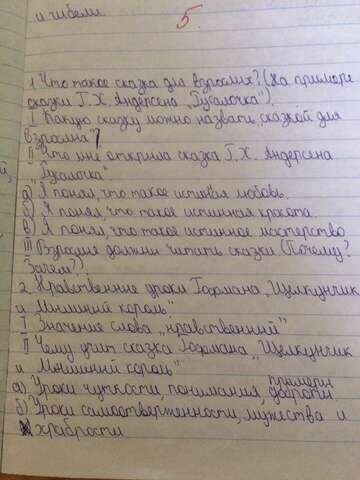 и гибели.
5.
1. Что такое сказка для взрослых? (На примере
сказки Г. Х. Андерсена „Русалочка").
I Какую сказку можно назвать „сказкой для
взрослых"?
II Что мне открыла сказка Г. Х. Андерсена
„Русалочка"
а) Я понял, что такое истинная любовь.
б) Я понял, что такое истинная красота.
в) Я понял, что такое истинное мастерство.
III Взрослые должны читать сказки (Почему?
Зачем?)
2. Нравственные уроки Гофмана „Щелкунчик
и Мышиный король"
I Значение слова „нравственный"
II Чему учит сказка Гофмана „Щелкунчик
и Мышиный король"
примеры
а) Уроки чуткости, понимания, доброты
б) Уроки самоотверженности, мужества и
храбрости